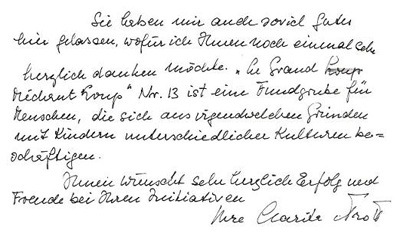 Sie haben mir auch soviel Gutes
hier gelassen, wofür ich Ihnen noch einmal sehr
herzlich danken möchte. „Le Grand
Méchant Loup" Nr. 13 ist eine Fundgrube für
Menschen, die sich aus irgendwelchen Gründen
mit Kindern unterschiedlicher Kulturen be-
schäftigen.
Ihnen wünscht sehr herzlich Erfolg und
Freude bei Ihren Initiativen
Ihre Clarita